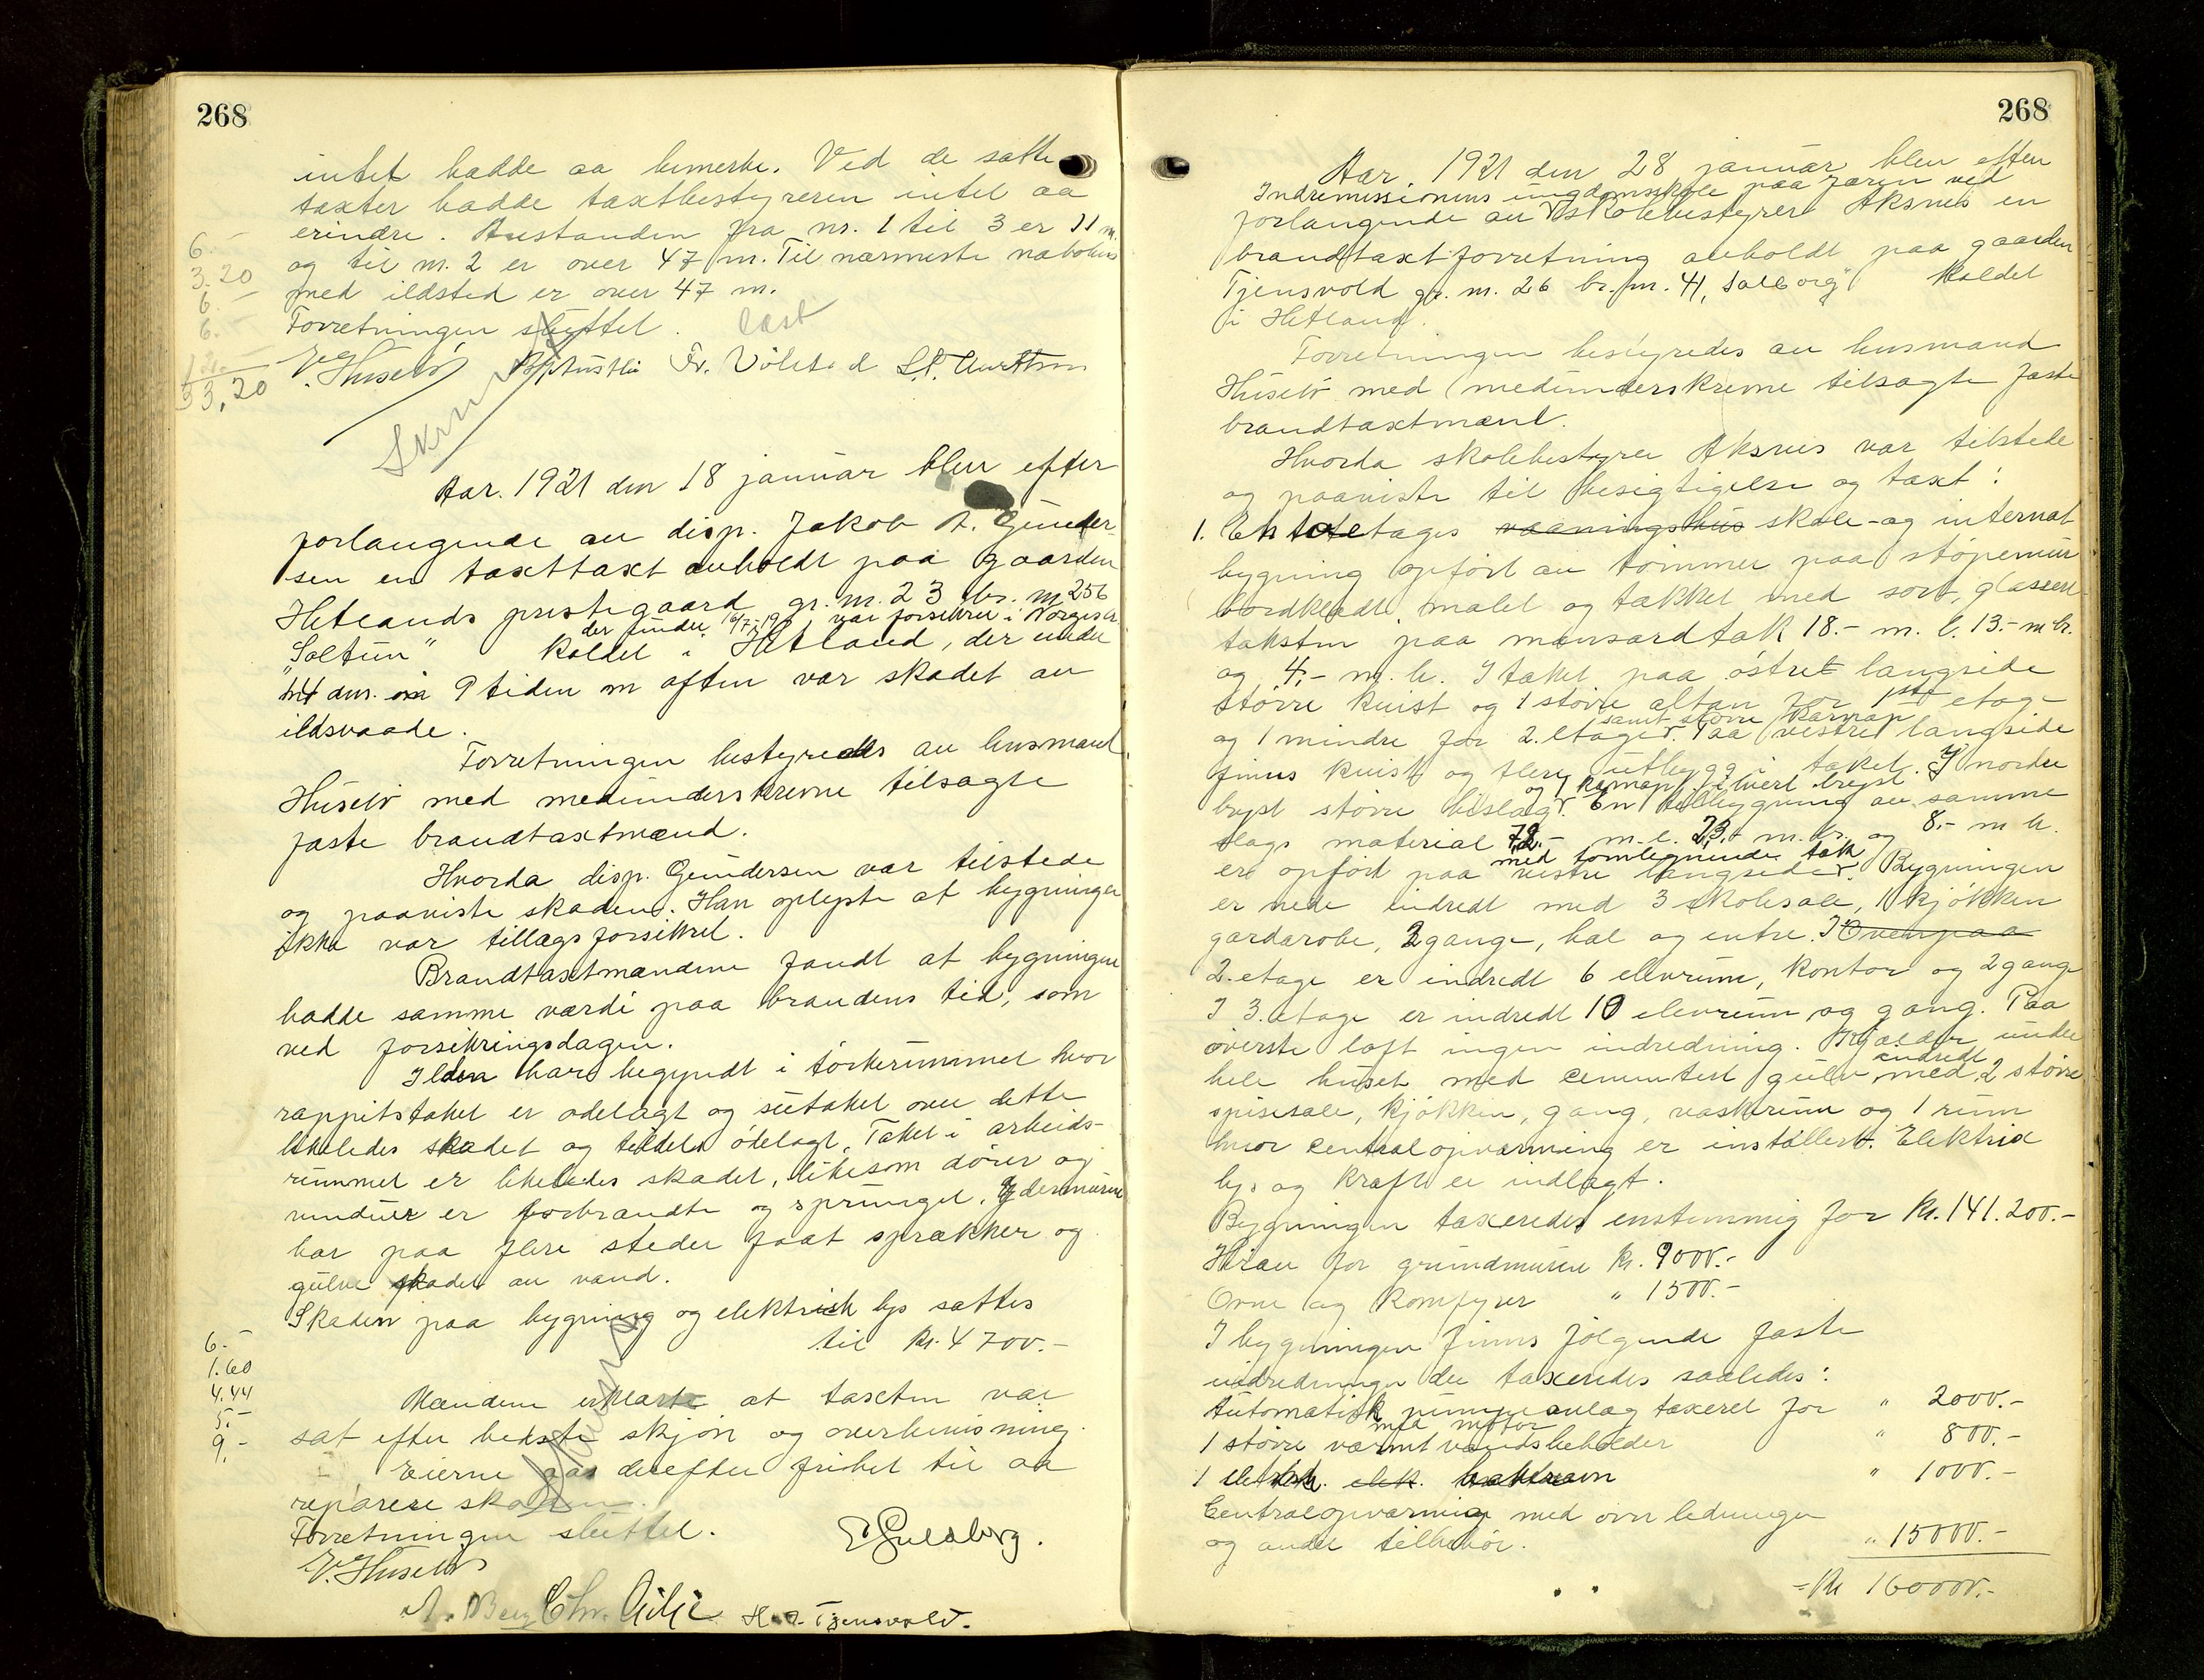 268
intet hadde aa bemerke. Ved de satte
taxter hadde taxtbestyreren intet aa
erindre. Avstanden fra nr. 1 til 3 er 11 m.
og til nr. 2 er over 47 m. Til nærmeste nabohus
med ildsted er over 47 m.
Forretningen sluttet. læst
6.-
3.20
6.-
6.-
33,20
V. Husebø Fr. Völstad
Skrevet
Aar. 1921 den 18 januar blev efter
forlangende av disp. Jakob A. Gunder-
sen en taxttaxt avholdt paa gaarden
Hetlands prestegaard gr. nr. 23 br. nr 256
der under 16/7-19 var forsikret i Norges br.
"Soltun" kaldet i Hetland, der under
14 ds. 9 tiden om aften var skadet av
ildsvaade.
Forretningen bestyredes av lensmand
Husebø med medunderskrevne tilsagte
faste brandtaxtmænd.
Hvorda disp. Gundersen var tilstede
og paaviste skaden. Han oplyste at bygningen
ikke var tillægsforsikret.
Brandtaxtmændene fandt at bygningen
hadde samme værdi paa brandens tid, som
ved forsikringsdagen.
Ilden har begyndt i tørkerummet hvor
rappitstaket er ødelagt og sutaket over dette
likeledes skadet og tildels ødelagt. Taket i arbeids-
rummet er likeledes skadet, likesom dører og
vinduer er forbrændte og sprunget. Ydermurene
har paa flere steder faat sprækker og
gulve skadet av vand.
Skaden paa bygning og elektrisk lys sattes
til kr. 4700.-
6.-
1.60
4.44
5.-
9.-
Mændene erklærte at taxten var
sat efter bedste skjøn og overbevisning.
Eierne gas derefter frihet til aa
reparere skaden.
Forretningen sluttet.
E Gulsberg.
V. Husebø
A. Berg Chr. Gilje H. A. Tjensvold.
268
Aar 1921 den 28 januar blev efter
Indremissionens ungdomsskole paa Jæren ved
forlangende av skolebestyrer Aksnes en
brandtaxtforretning avholdt paa gaarden
Tjensvold gr. nr. 26 br. nr. 41, "Solborg" kaldet
i Hetland.
Forretningen bestyredes av lensmand
Husebø med medunderskrevne tilsagte faste
brandtaxtmænd.
Hvorda skolebestyrer Aksnes var tilstede
og paaviste til besigtigelse og taxt:
1. En toetages vaaningshus skole- og internat
bygning opført av tømmer paa støpemur
bordklædt malet og tækket med sort, glassert
taksten paa mansardtak 18.- m. l. 13.- m br.
og 4.- m. h. I taket paa østre langside
større kvist og 1 større altan for 1ste etage
og 1 mindre for 2. etage. samt større karnap Paa vestre langside
findes kvist og flere utbygg i taket. I nordre
bryst større bislag. og 1 karnap i hvert bryst En tilbygning av samme
slags material 7,2.- m. l. 2,3.- m. br. og 8.- m h.
med tømlignende tak
er opført paa vestre langside. Bygningen
er nede indredt med 3 skolesale, 1 kjøkken
garderobe, 2 gange, hal og entre. I Ovenpaa
2. etage er indredt 6 elevrum, kontor og 2 gange
I 3. etage er indredt 10 elevrum og gang. Paa
øverste loft ingen indredning. Kjælder under
hele huset med cementert gulv indredt med 2 større
spisesale, kjøkken, gang, vaskerum og 1 rum
hvor centralopvarming er installert. Elektrisk
lys og kraft er indlagt.
Bygningen taxeredes enstemmig for kr. 141.200.-
Herav for grundmuren kr. 9000.-
Ovne og komfyrer " 1500.-
I bygningen findes følgende faste
indredninger der taxeredes saaledes:
Automatisk pumpeanlæg med motor taxeret for " 2000.-
1 større varmtvandsbeholder " 800.-
1 elektrk. elek. bakerovn " 1000.-
Centralopvarming med ovn ledninger
og andet tilbehør. " 15000.-
= Kr 160000.-